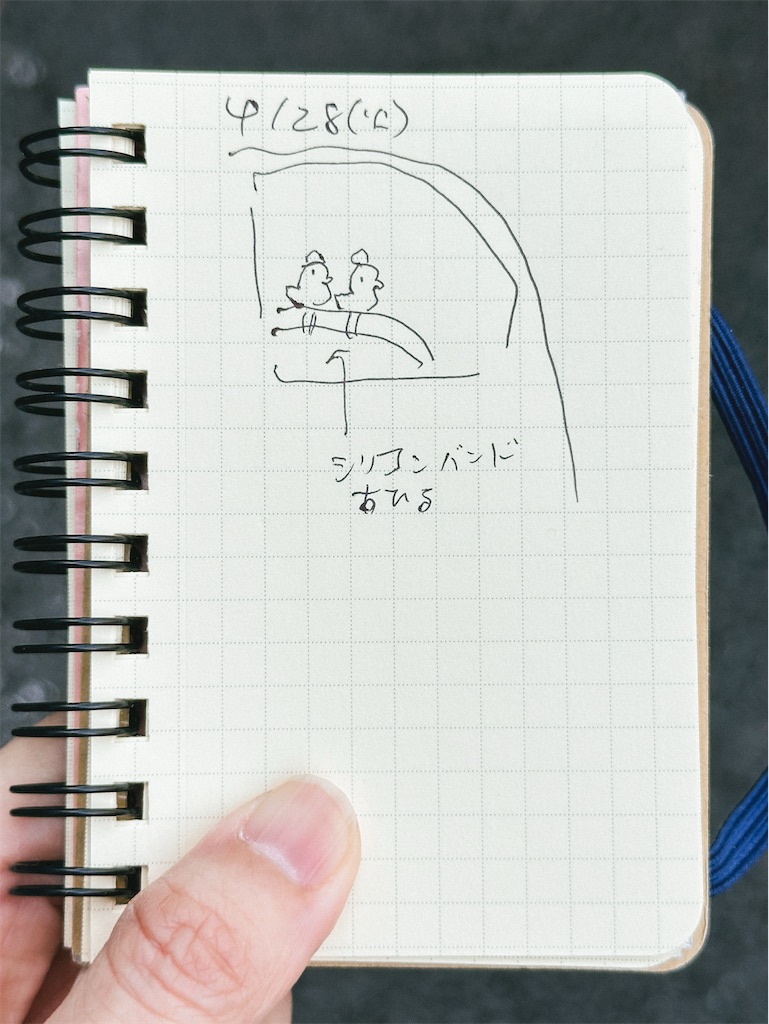 4/28(火)
シリコンバンド
あひる